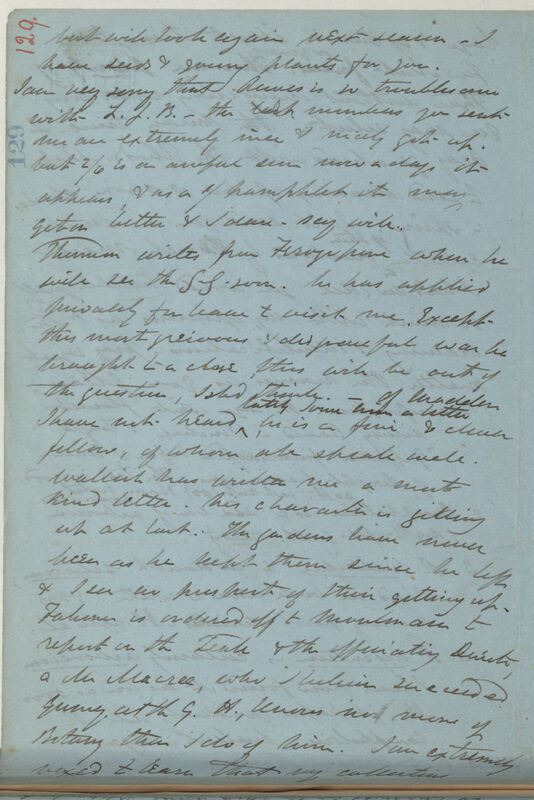 129.
129
but will look again next season - I
have seeds & young plants for you.
I am very sorry that Reeve is so troublesome
with L. J. B. - the last numbers you sent
me are extremely nice & nicely got up.
but 2/6 is an awful sum now a days it
appears, & as a pamphlet it may
get on better & I dare-say will.
Thomson writes from Ferozepore where he
will see the G G. soon. he has applied
privately for leave to visit me. Except
this most greivous & disgraceful war be
brought to a close this will be out of
the question, I shd think. - of Madden
I have not heard lately, he is a fine & clever
fellow, of whom all speak well.
Wallich has written me a most
kind letter. his character is getting
up at last. The gardens have never
been as he kept them since he left
& I see no prospect of their getting up.
Falconer is ordered off to Moulmain to
report on the Teak & the officiating Director,
a Mr Macrae, who I believe succeeded
at the G. H., knows no more of
Botany than I do of him. I am extremely
vexed to learn that my collection